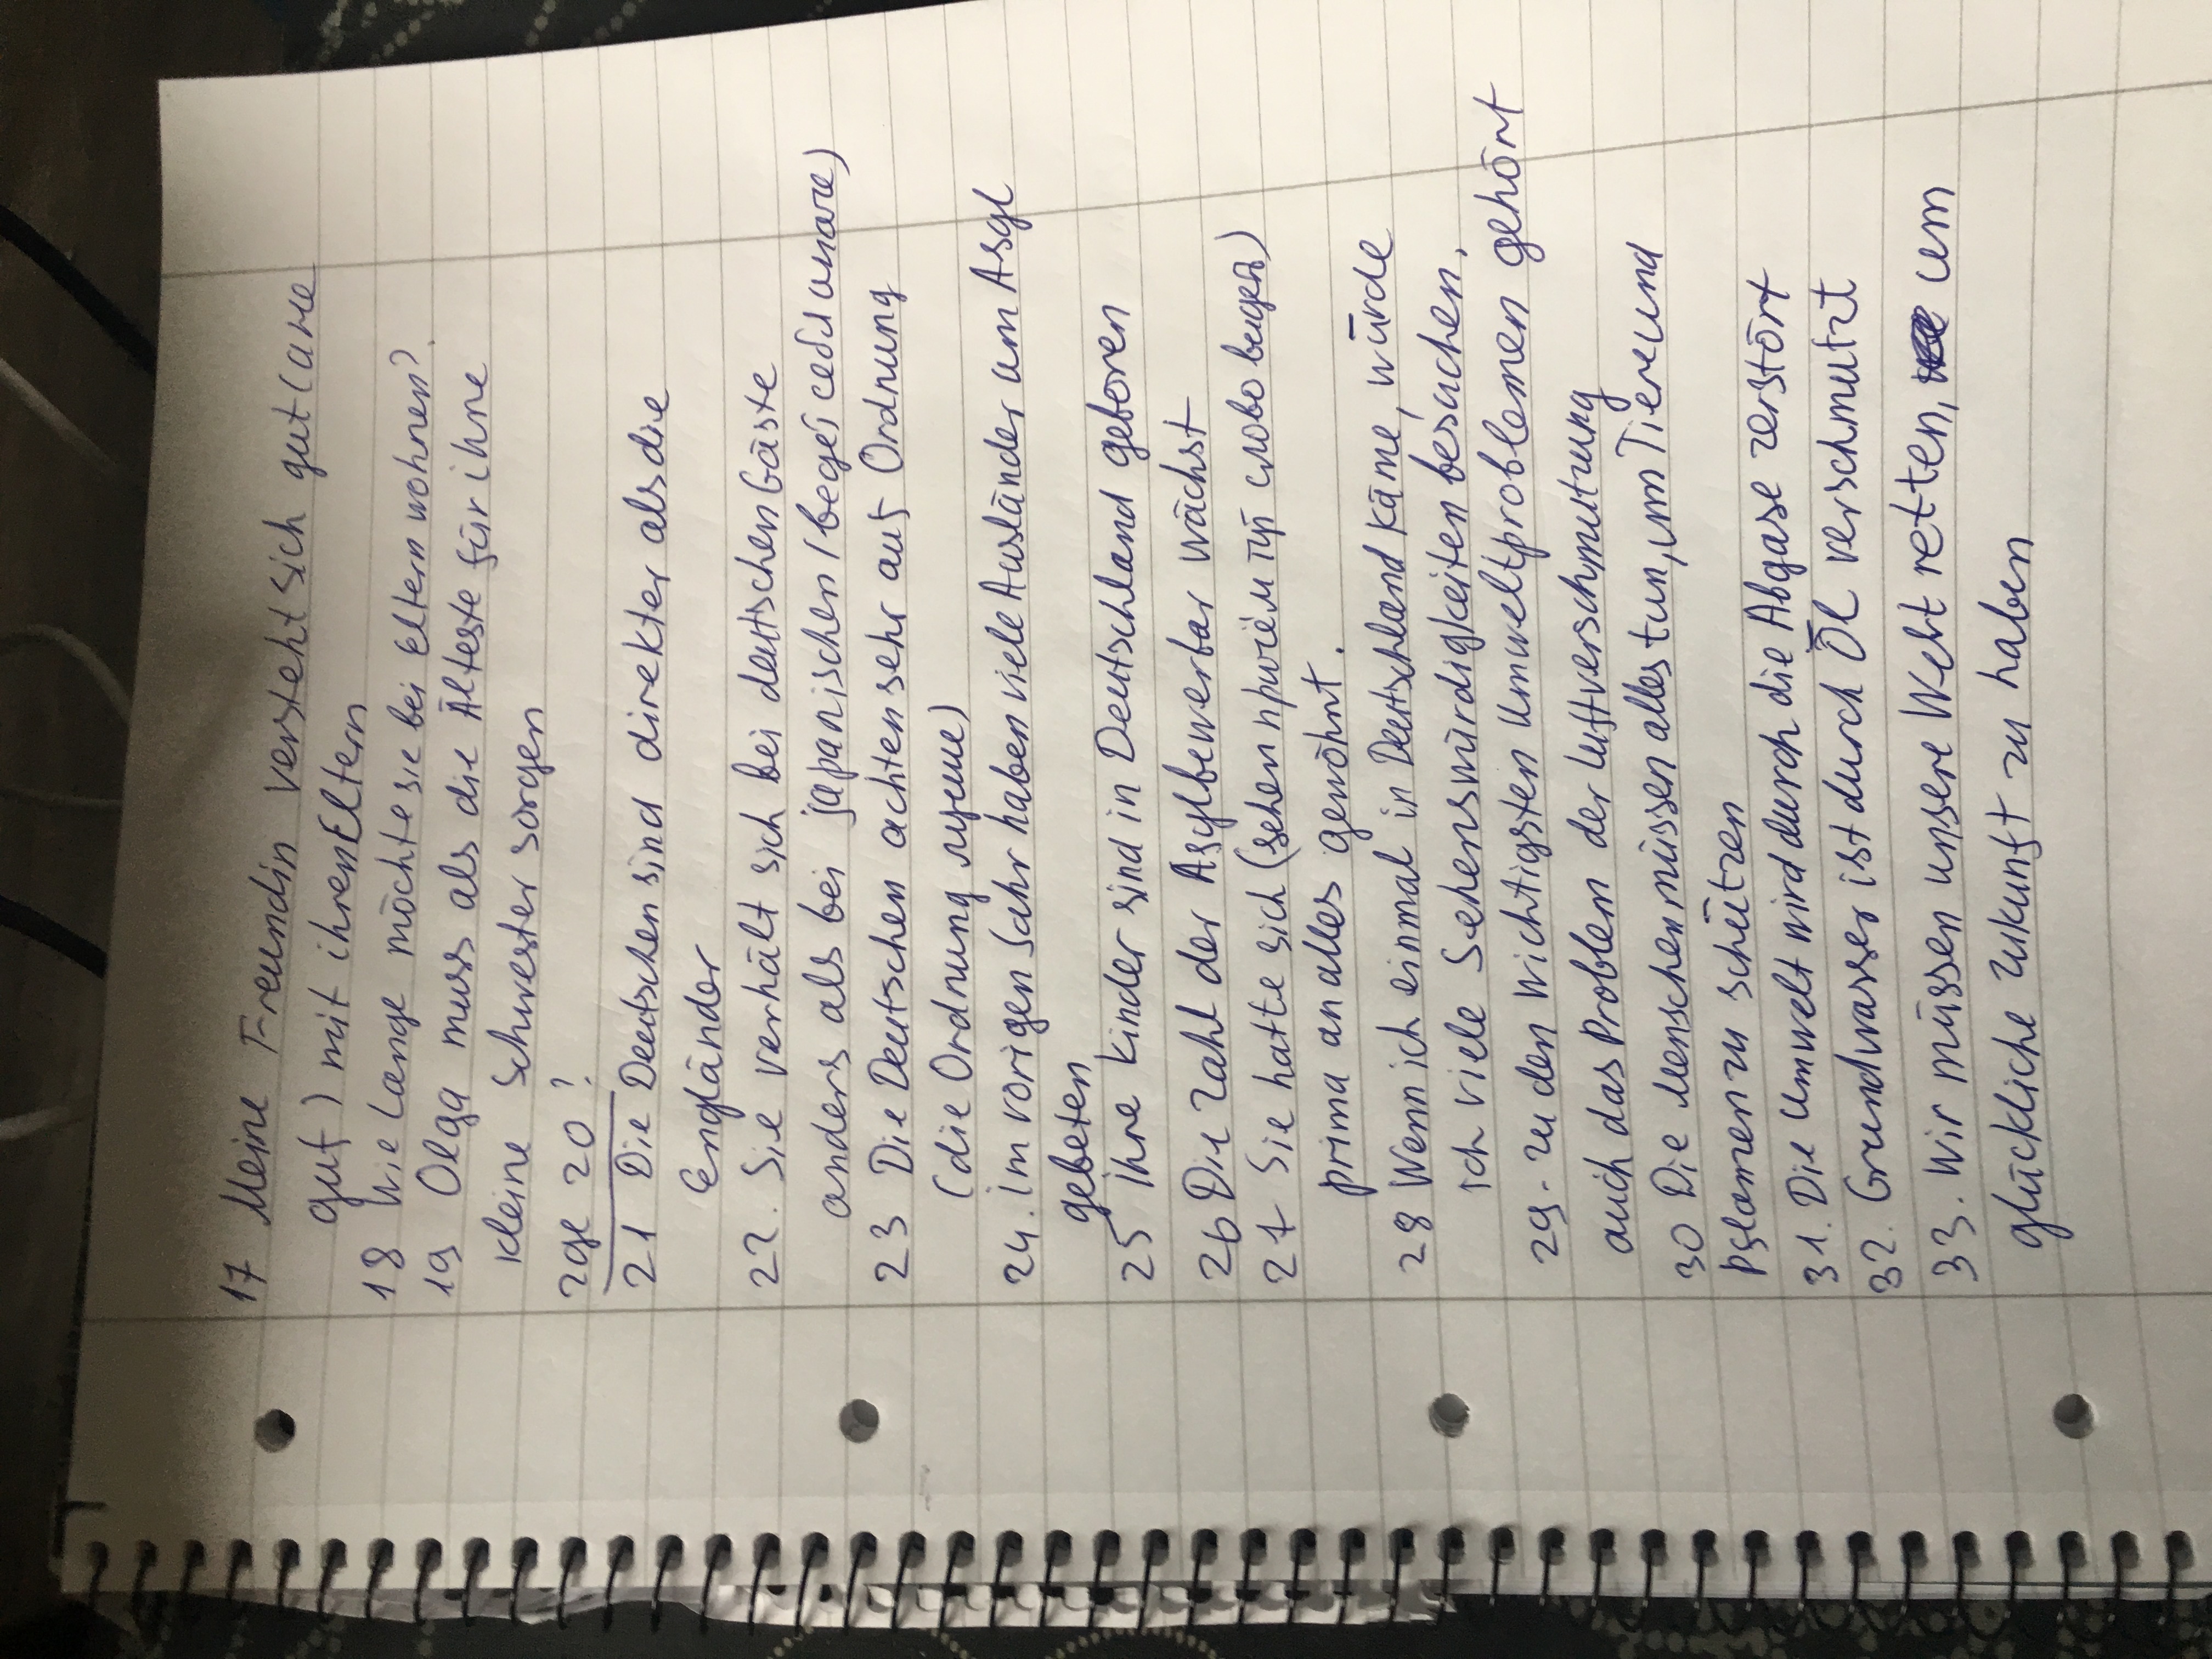 17 Meine Freundin versteht sich gut (are
gut) mit ihren Eltern
18 Wie lange möchte sie bei Eltern wohnen?
19 Olga muss als die Älteste für ihne
kleine Schwester sorgen
где 20?
21 Die Deutschen sind direkter als die
Engländer
22. Sie verhält sich bei deutschen Gäste
anders als bei japanischen (ведёт себя иначе)
23 Die Deutschen achten sehr auf Ordnung
(die Ordnung лучше)
24. im vorigen Jahr haben viele Ausländer um Asyl
gebeten
25 ihre Kinder sind in Deutschland geboren
26 Die Zahl der Asylbewerbar wächst
27 Sie hatte sich (sehen причём тут слово видеть)
prima an alles gewöhnt.
28 Wenn ich einmal in Deutschland käme, würde
ich viele Sehenswürdigkeiten besuchen.
29. zu den wichtigsten Umweltproblemen gehört
auch das Problem der luftverschmutzung
30 Die Menschen müssen alles tun, um Tiere und
Pflamen zu schützen
31. Die Umwelt wird durch die Abgase zerstört
32. Grundwasser ist durch Öl verschmutzt
33. Wir müssen unsere Welt retten, um
glückliche Zukunft zu haben